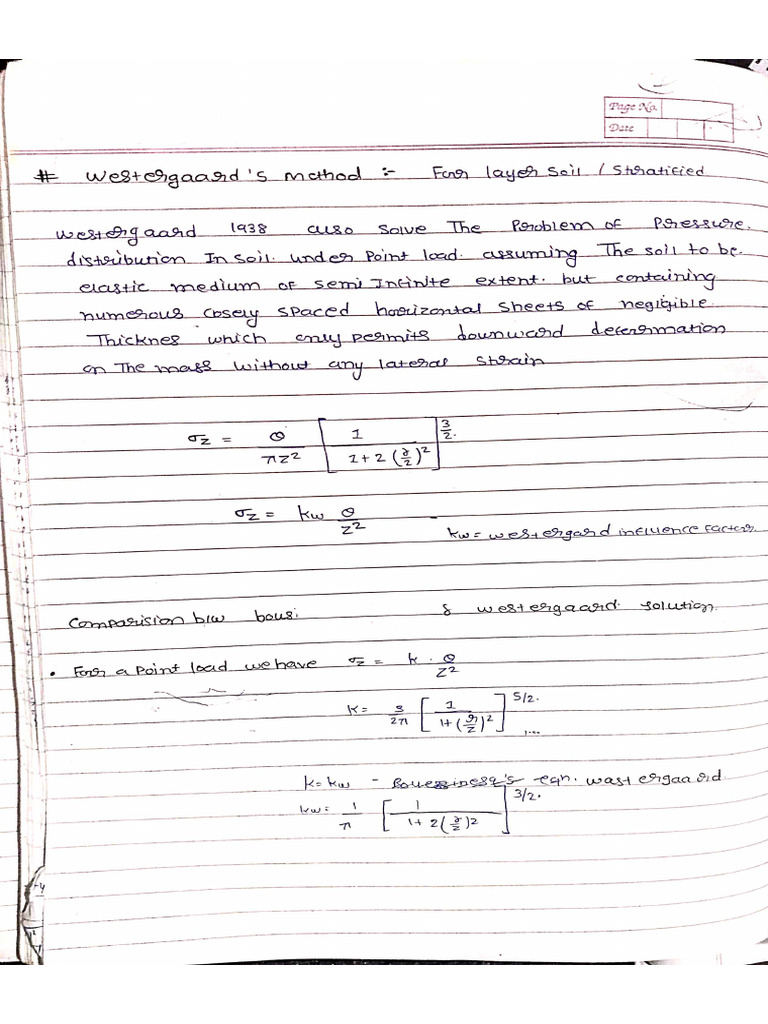 Page No.
Date
# Westergaard's method :- For layer Soil / Stratified
Westergaard 1938 also solve The Problem of Pressure
distribution In soil under Point load. assuming The soil to be
elastic medium of semi Infinite extent. but containing
numerous Cosely spaced horizontal Sheets of negligible
Thicknes which only permits downward deformation
on The mass without any lateral strain
σz = Q / πz² [ 1 / 1+2(r/z)² ]^3/2.
σz = kw Q / z²
kw = westergard influence factor
Comparision b/w bous: & westergaard solution.
• For a Point load we have σz = k . Q / z²
k = 3 / 2π [ 1 / 1+(r/z)² ]^5/2. ,...
k = kw - Boussinesq's eqn. wastergaard
kw = 1 / π [ 1 / 1+2(r/z)2 ]^3/2.